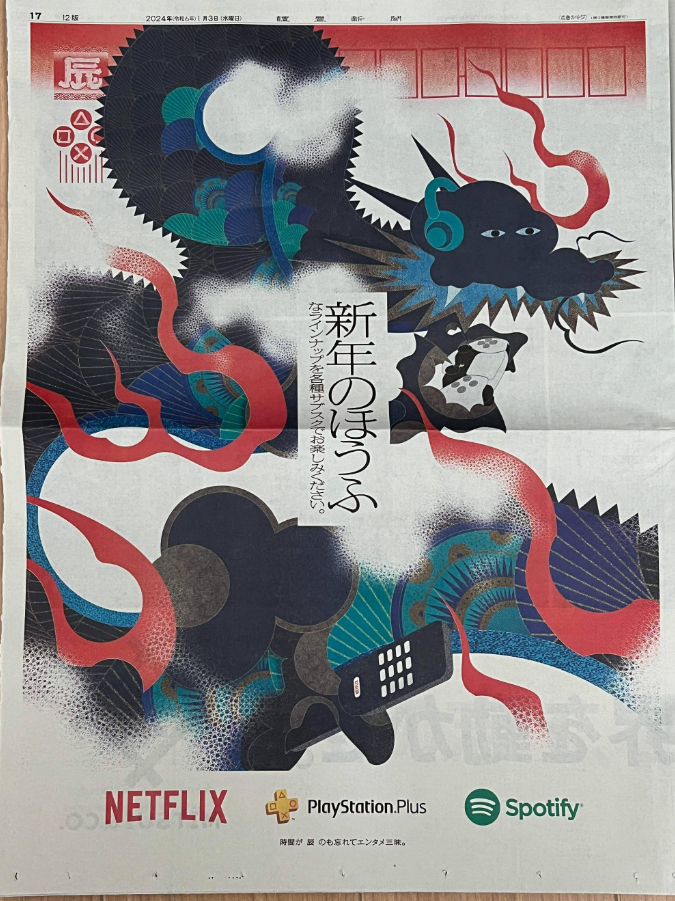 17
12版
2024年(令和6年)1月3日(水曜日)
讀賣新聞
辰
新年のほうふ
なラインナップを各種サブスクでお楽しみください。
NETFLIX
PlayStation.Plus
Spotify
時間が 辰 のも忘れてエンタメ三昧。